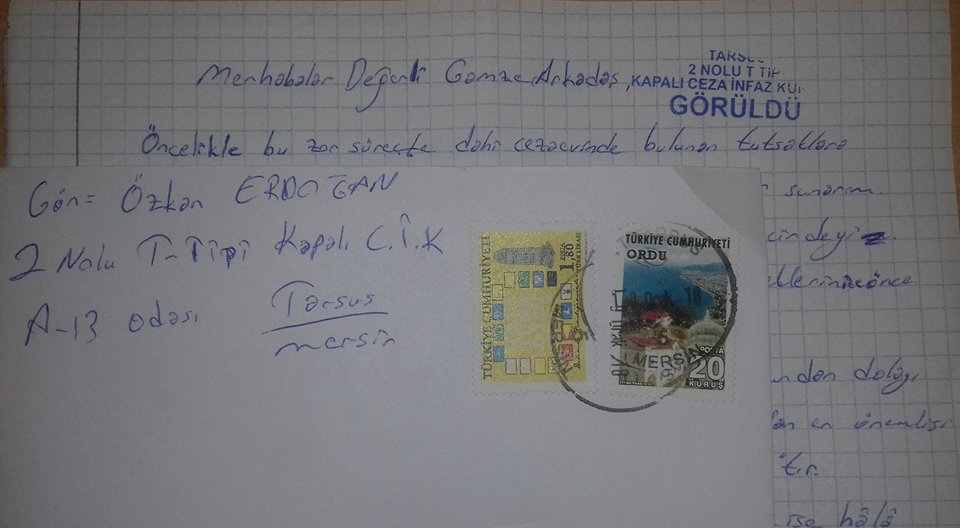 Merhabalar Değerli Gamze Arkadaş,
TARSUS
2 NOLU T TİP
KAPALI CEZA İNFAZ KUR
GÖRÜLDÜ
Öncelikle bu zor süreçte dahi cezaevinde bulunan tutsaklara
sunarım.
içindeyiz
önce
dolayı
en önemlisi
tır.
ise hâlâ
Gön= Özkan ERDOĞAN
2 Nolu T-Tipi Kapalı C.İ.K
A-13 odası
Tarsus
mersin
TÜRKİYE CUMHURİYETİ
1.80
TÜRKİYE CUMHURİYETİ
ORDU
POSTA
20
KURUŞ
MERSİN